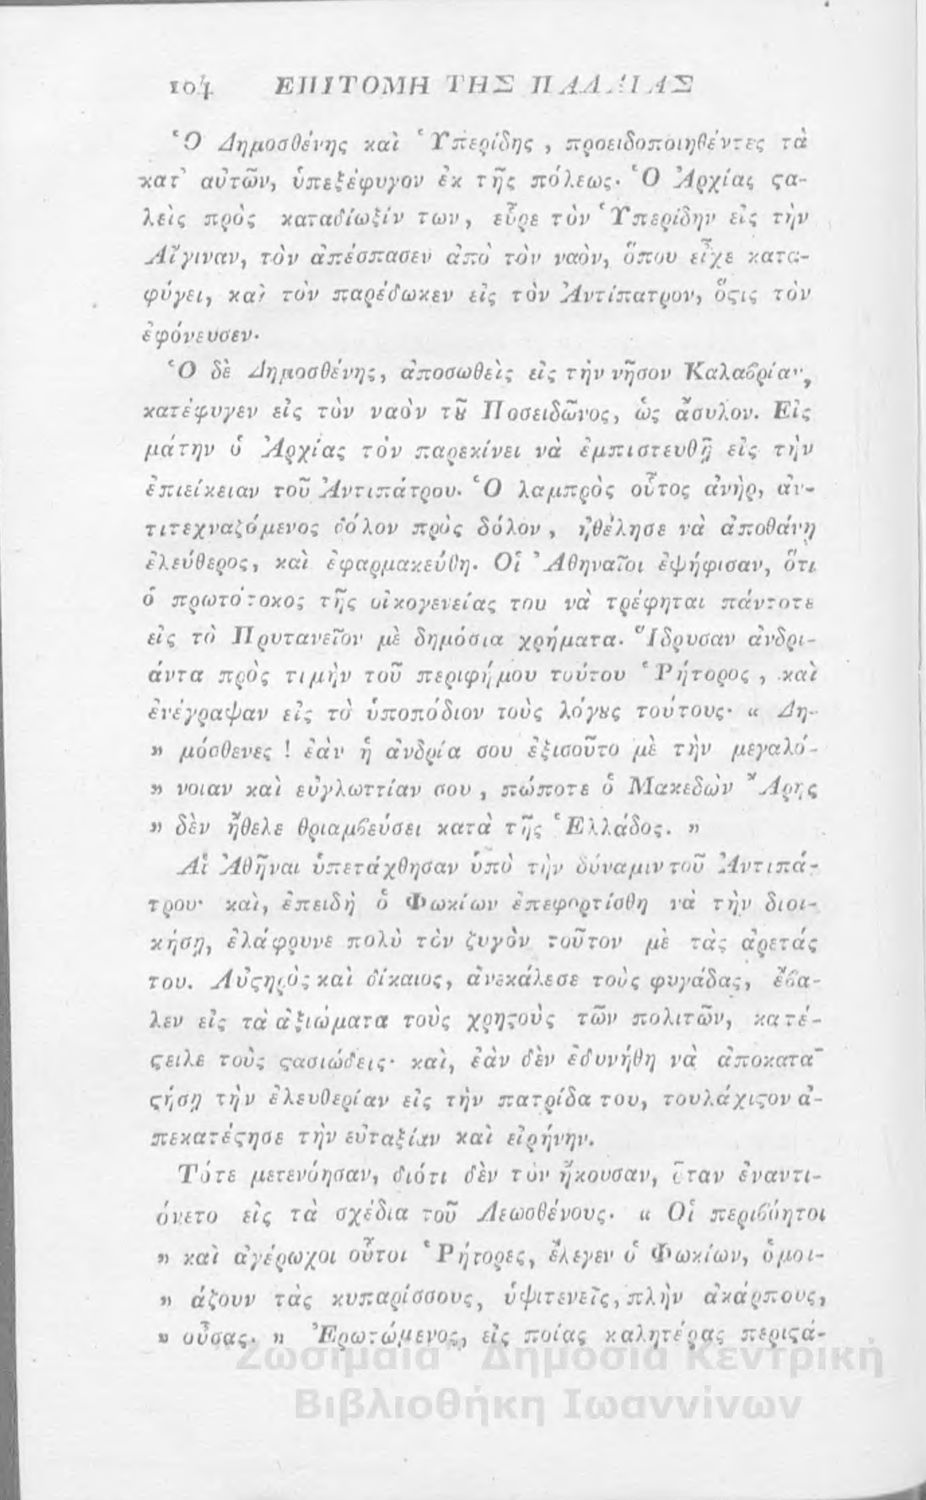 104 ΕΠΙΤΟΜΗ ΤΗΣ ΠΑΛΑΙΑΣ
Ὁ Δημοσθένης καὶ Ὑπερίδης, προειδοποιηθέντες τὰ
κατ' αὐτῶν, ὑπεξέφυγον ἐκ τῆς πόλεως· Ὁ Ἀρχίας ϛα-
λεὶς πρὸς καταδίωξίν των, εὗρε τὸν Ὑπερίδην εἰς τὴν
Αἴγιναν, τὸν ἀπέσπασεν ἀπὸ τὸν ναὸν, ὅπου εἶχε κατα-
φύγει, καὶ τὸν παρέδωκεν εἰς τὸν Ἀντίπατρον, ὅϛις τὸν
ἐφόνευσεν·
Ὁ δὲ Δημοσθένης, ἀποσωθεὶς εἰς τὴν νῆσον Καλαβρίαν,
κατέφυγεν εἰς τὸν ναὸν τȣ͂ Ποσειδῶνος, ὡς ἄσυλον. Εἰς
μάτην ὁ Ἀρχίας τὸν παρεκίνει νὰ ἐμπιστευθῇ εἰς τὴν
ἐπιείκειαν τοῦ Ἀντιπάτρου· Ὁ λαμπρὸς οὗτος ἀνὴρ, ἀν-
τιτεχναζόμενος δόλον πρὸς δόλον, ἠθέλησε νὰ ἀποθάνῃ
ἐλεύθερος, καὶ ἐφαρμακεύθη· Οἱ Ἀθηναῖοι ἐψήφισαν, ὅτι
ὁ πρωτότοκος τῆς οἰκογενείας του νὰ τρέφηται πάντοτε
εἰς τὸ Πρυτανεῖον μὲ δημόσια χρήματα· Ἵδρυσαν ἀνδρι-
άντα πρὸς τιμὴν τοῦ περιφήμου τούτου Ῥήτορος, καὶ
ἐνέγραψαν εἰς τὸ ὑποπόδιον τοὺς λόγȣς τούτους· « Δη-
» μόσθενες ! ἐὰν ἡ ἀνδρία σου ἐξισοῦτο μὲ τὴν μεγαλό-
» νοιαν καὶ εὐγλωττίαν σου, πώποτε ὁ Μακεδὼν Ἄρης
» δὲν ἤθελε θριαμβεύσει κατὰ τῆς Ἑλλάδος. »
Αἱ Ἀθῆναι ὑπετάχθησαν ὑπὸ τὴν δύναμιν τοῦ Ἀντιπά-
τρου· καὶ, ἐπειδὴ ὁ Φωκίων ἐπεφορτίσθη νὰ τὴν διοι-
κήσῃ, ἐλάφρυνε πολὺ τὸν ζυγὸν τοῦτον μὲ τὰς ἀρετάς
του. Αὐϛηρὸς καὶ δίκαιος, ἀνεκάλεσε τοὺς φυγάδας, ἔβα-
λεν εἰς τὰ ἀξιώματα τοὺς χρηϛοὺς τῶν πολιτῶν, κατέ-
ϛειλε τοὺς ϛασιώδεις· καὶ, ἐὰν δὲν ἐδυνήθη νὰ ἀποκατα-
ϛήσῃ τὴν ἐλευθερίαν εἰς τὴν πατρίδα του, τουλάχιϛον ἀ-
πεκατέϛησε τὴν εὐταξίαν καὶ εἰρήνην.
Τότε μετενόησαν, διότι δὲν τὸν ἤκουσαν, ὅταν ἐναντι-
όνετο εἰς τὰ σχέδια τοῦ Λεωσθένους· « Οἱ περιβόητοι
» καὶ ἀγέρωχοι οὗτοι Ῥήτορες, ἔλεγεν ὁ Φωκίων, ὁμοι-
» άζουν τὰς κυπαρίσσους, ὑψιτενεῖς, πλὴν ἀκάρπους,
» οὔσας· » Ἐρωτώμενος, εἰς ποίας καλητέρας περιϛά-
Ζωσιμαία Δημόσια Κεντρική
Βιβλιοθήκη Ιωαννίνων